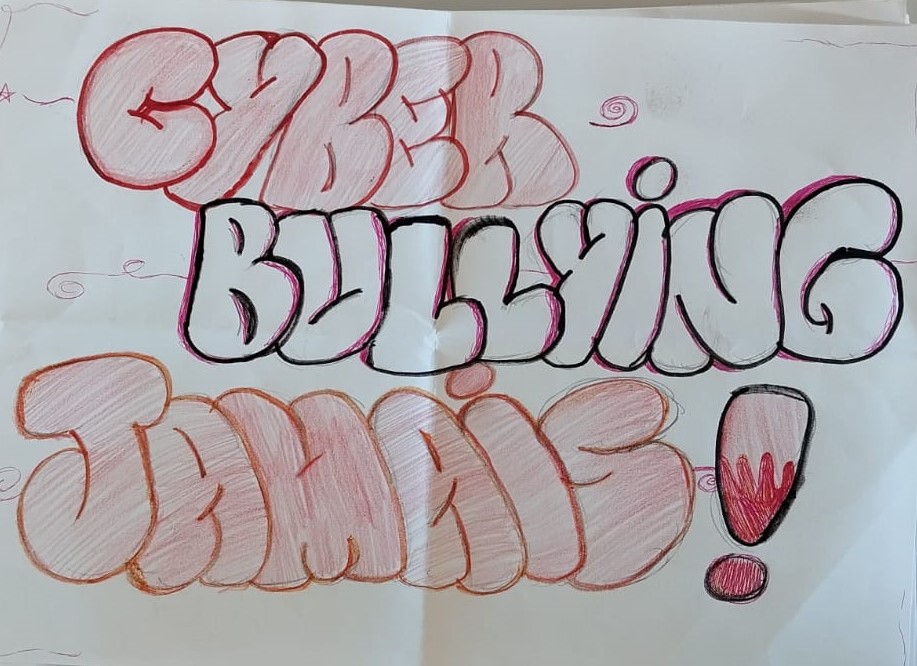 CYBER
BULLYiNG
JAMAiS !